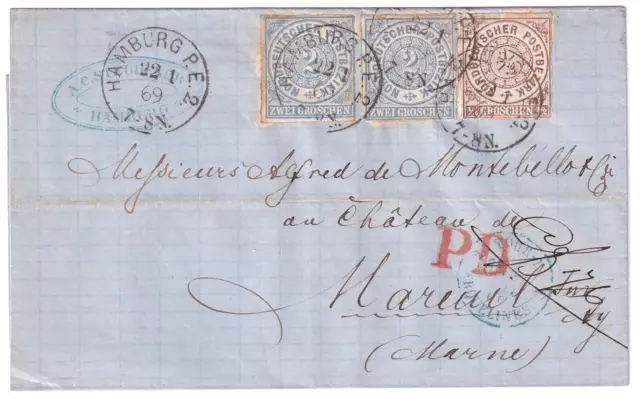 HAMBURG P.E.2.
22 1
69
7-8N.
HAMBURG
NORDDEUTSCHER POSTBEZIRK
2
ZWEI GROSCHEN
NORDDEUTSCHER POSTBEZIRK
2
ZWEI GROSCHEN
NORDDEUTSCHER POSTBEZIRK
GROSCHEN
HAMBURG P.E.2.
22
7-8N.
Messieurs Alfred de Montebéllo & Cie
au Château de
PD
Mareuil
Ay
(Marne)